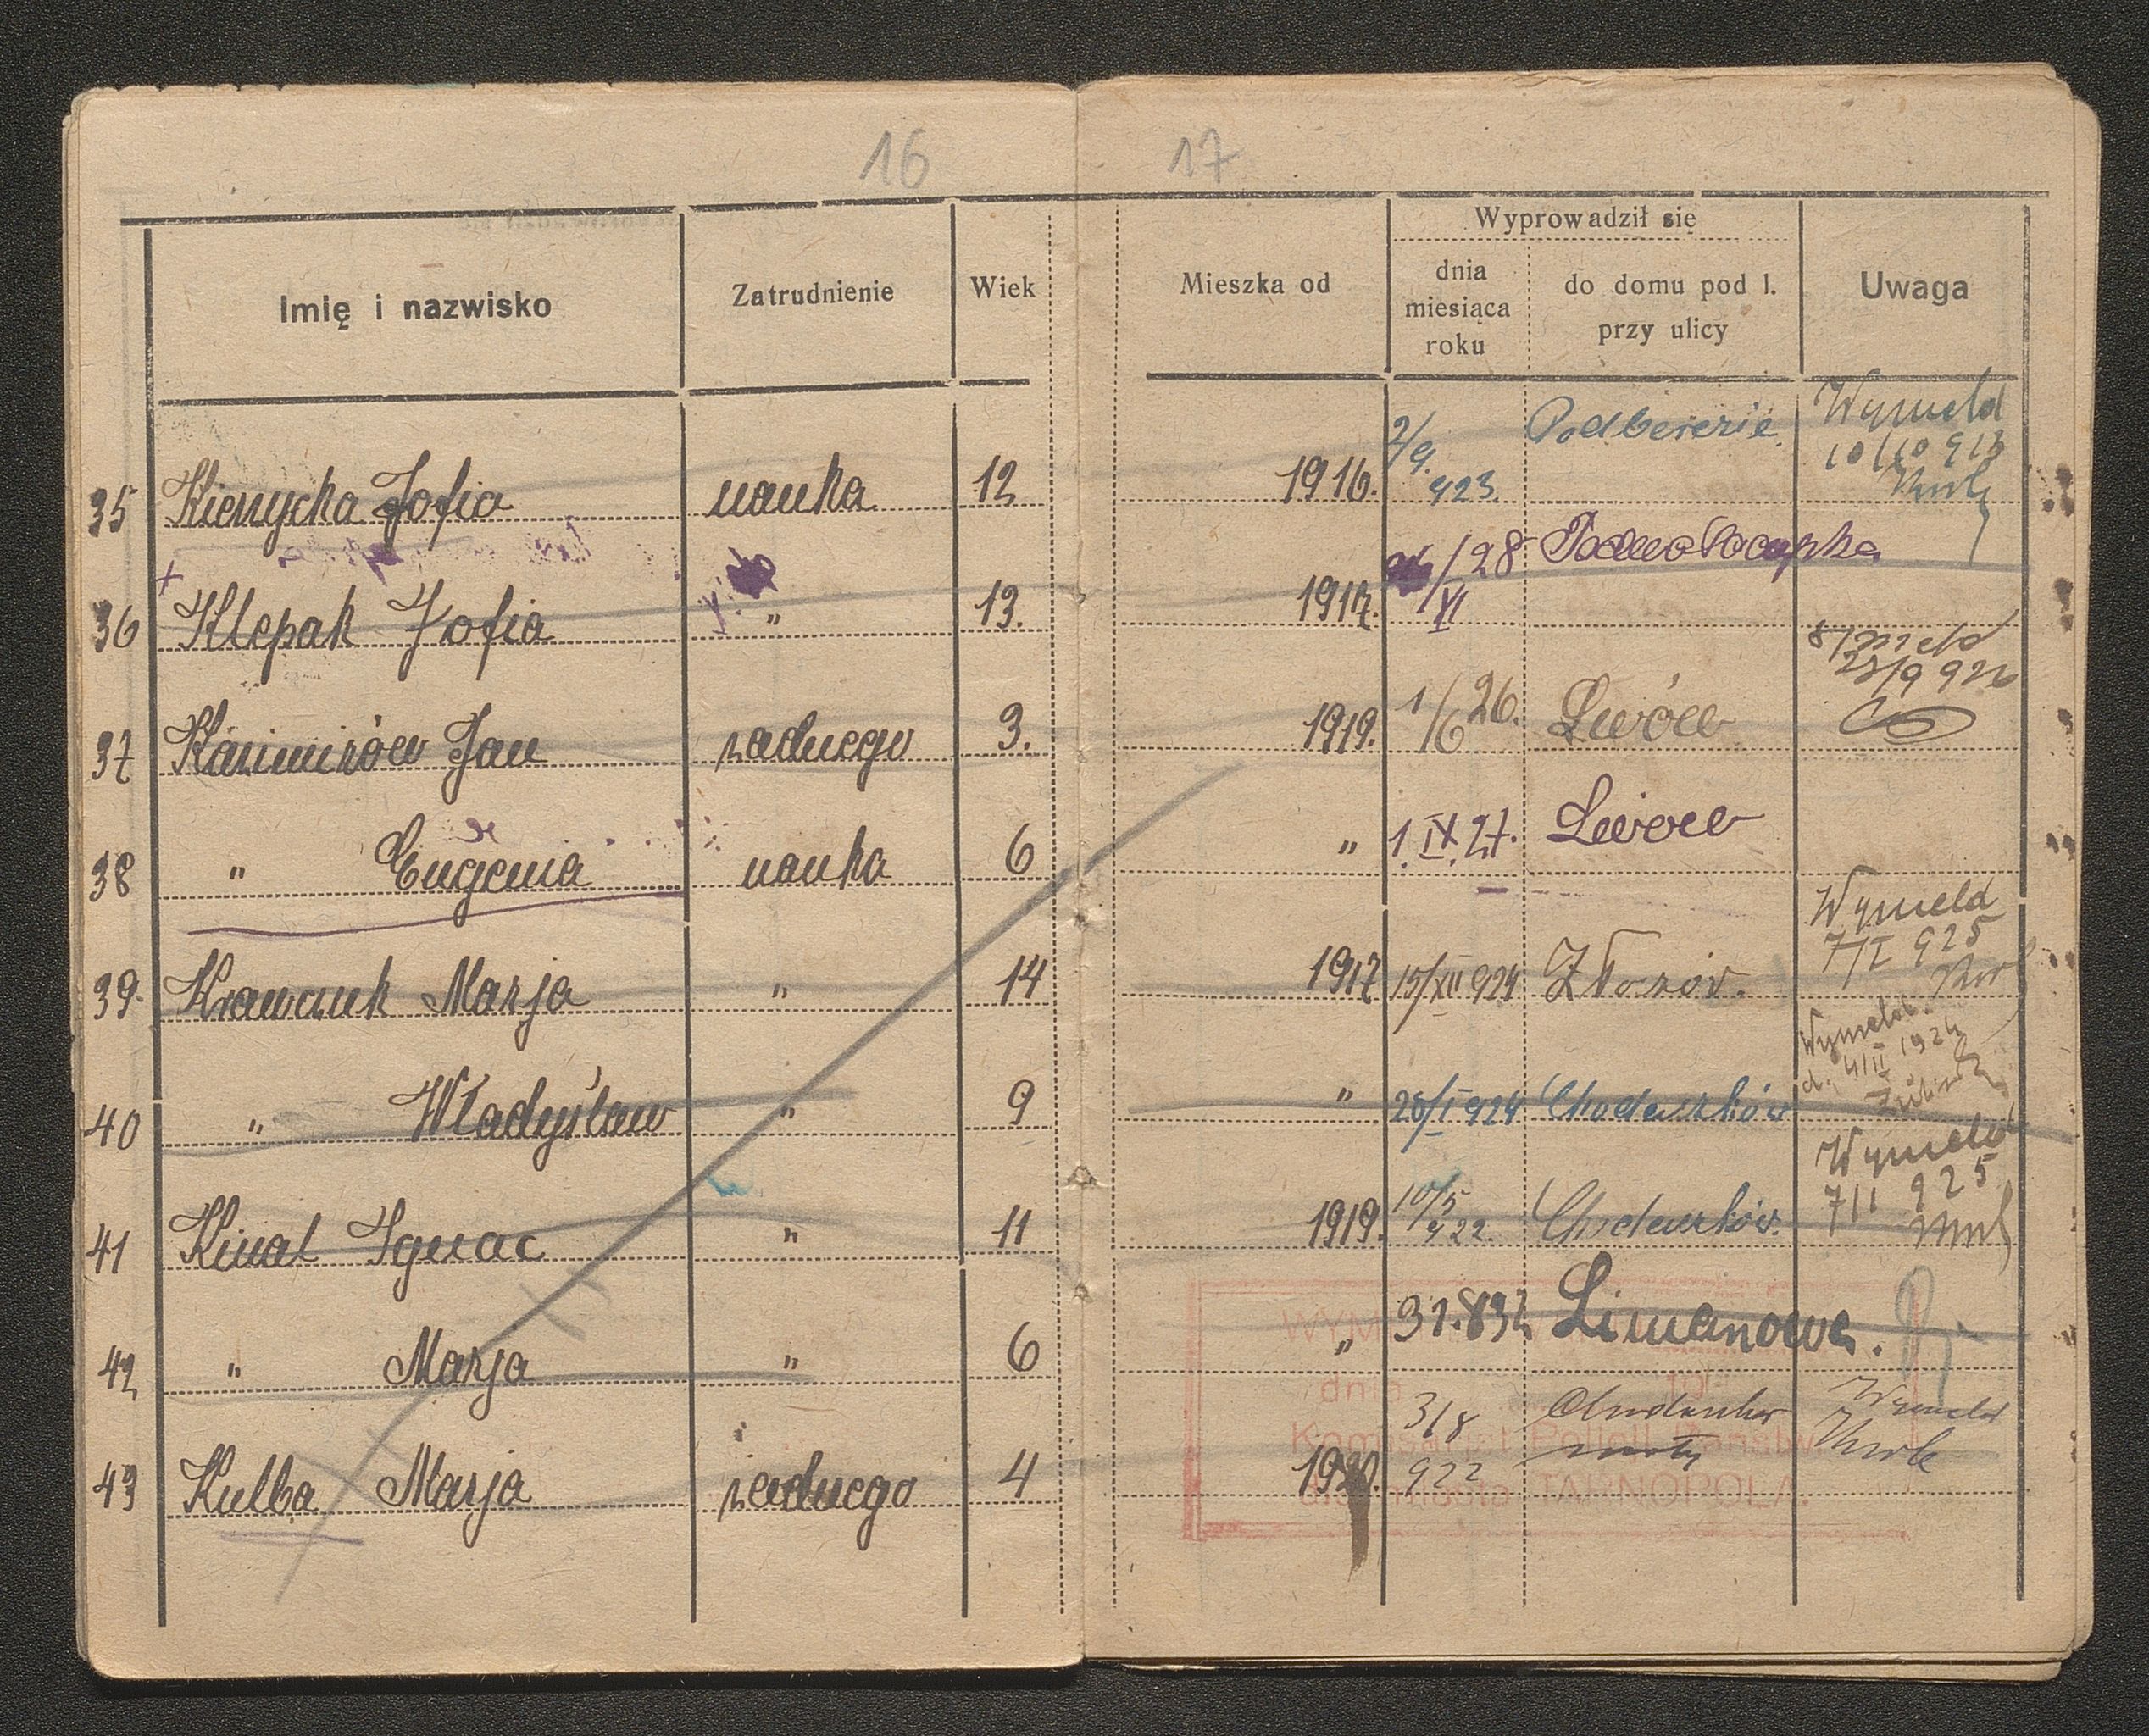 16 17
Imię i nazwisko Zatrudnienie Wiek Mieszka od Wyprowadził się Uwaga
dnia miesiąca roku do domu pod l. przy ulicy
35 Kienycka Zofia nauka 12 1916. 2/9. 923. Podberezie. Wymeld 10/10 913
36 Klepak Zofia " 13. 1917. /28 XI
37 Kazimirów Jan żadnego 3. 1919. 1/6 26. Lwów 23/9 926
38 " Eugenia nauka 6 " 1. IX. 27. Lwow
39. Krawczuk Marja " 14 1917 15/XII 924 Złozów. Wymeld 7/I 925
40 " Władysław " 9 " 28/I 924 Chodaczków Wymeld. d. 4/II 1924
41 Kinal Ignac " 11 1919. 10/5 922. Chodaczków. Wymeld 7/I 925
42 " Marja " 6 " 31.8 32 Limanowa.
43 Kulba Marja żadnego 4 1920. 3/8 922 Wymeld
WYM
dnia 19
Komisarjat Policji Państw.
dla miasta TARNOPOLA.